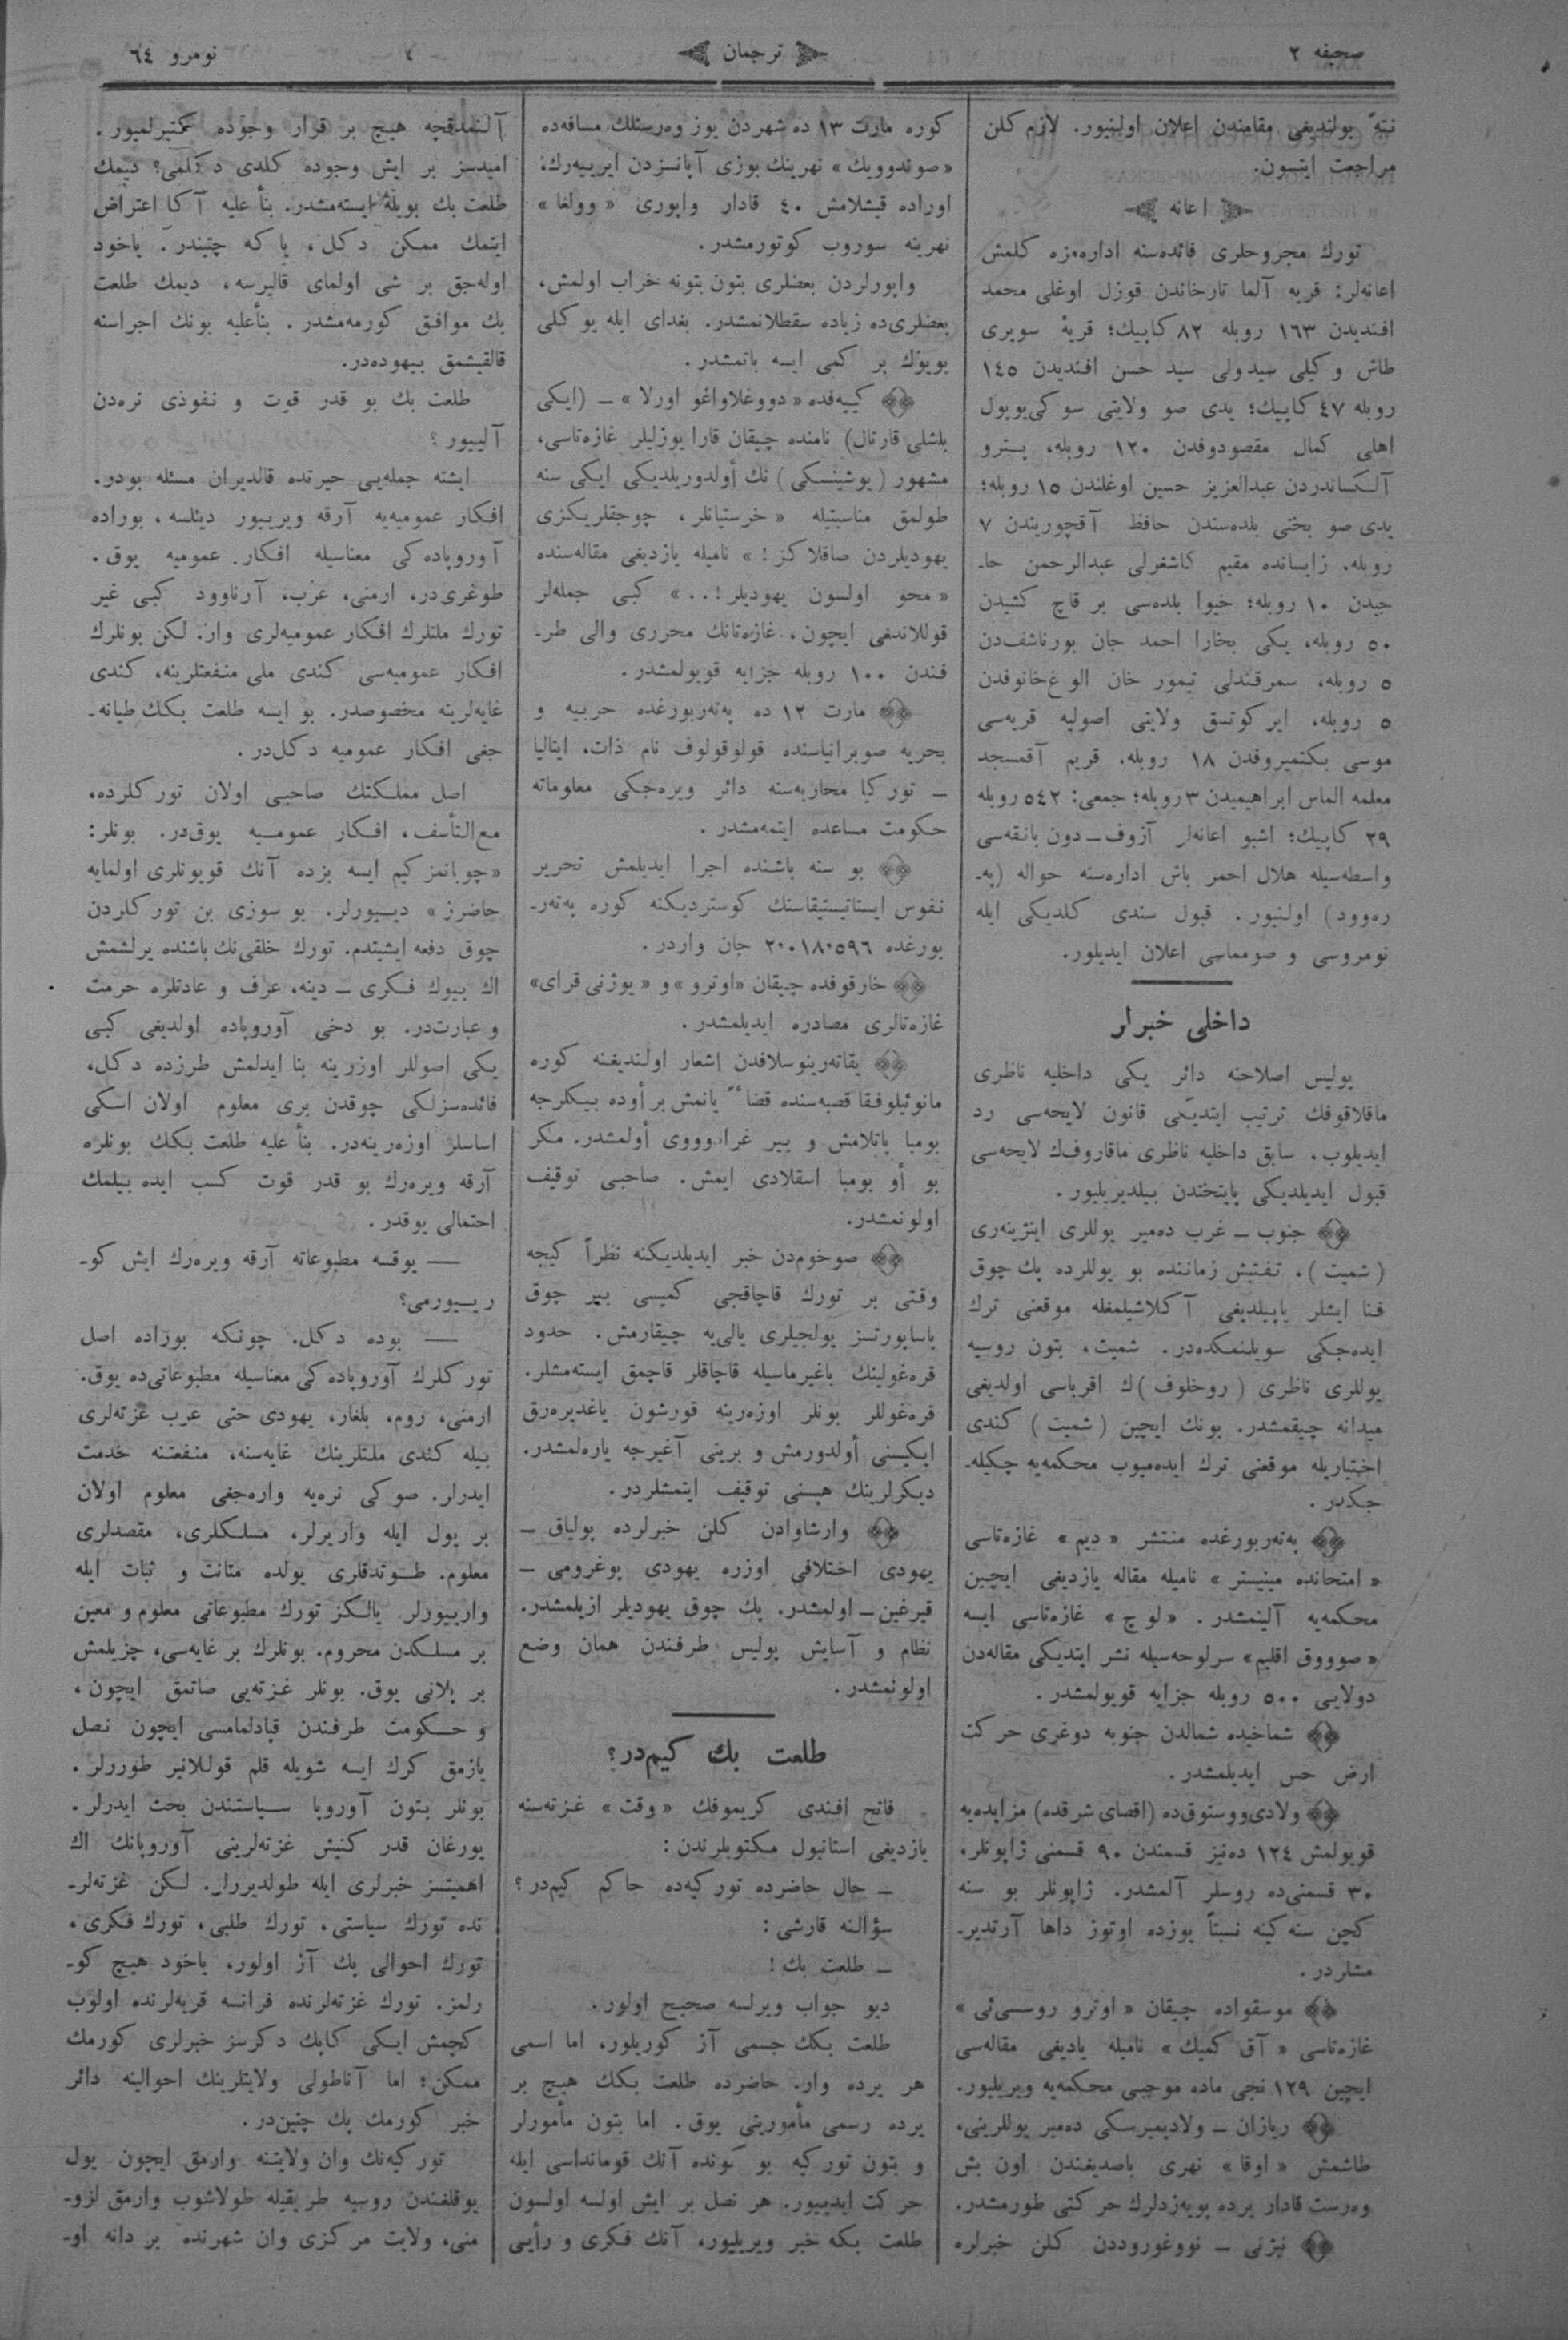 صحیفه ٢
ترجمان
نومرو ٦٤
نته بولندیغی مقامندن اعلان اولنیور. لازم کلن
مراجعت ایتسون.
اعانه
تورك مجروحلری فائده‌سنه اداره‌مزه کلمش
اعانه‌لر: قریه آلما تارخاندن قوزل اوغلی محمد
افندیدن ١٦٣ روبله ٨٢ کاپیك؛ قریۀ سویری
طاش وکیلی سیدولی سید حسن افندیدن ١٤٥
روبله ٤٧ کاپیك؛ یدی صو ولایتی سوکی‌یوپول
اهلی کمال مقصودوفدن ١٢٠ روبله، پـترو
آلکساندردن عبدالعزیز حسین اوغلندن ١٥ روبله؛
یدی صو بختی بلده‌سندن حافظ آقچوریندن ٧
روبله. زایسانده مقیم کاشغرلی عبدالرحمن حا-
جیدن ١٠ روبله؛ خیوا بلده‌سی بر قاچ کشیدن
٥٠ روبله، یکی بخارا احمد جان بورناشف‌دن
٥ روبله، سمرقندلی تیمور خان الوغ‌خانوفدن
٥ روبله، ایرکوتسق ولایتی اصولیه قریه‌سی
موسی بکتمیروفدن ١٨ روبله. قریم آقمسجد
معلمه الماس ابراهیمیدن ٣ روبله؛ جمعی: ٥٤٢ روبله
٢٩ کاپیك؛ اشبو اعانه‌لر آزوف ــ دون بانقه‌سی
واسطه‌سیله هلال احمر باش اداره‌سنه حواله (په-
ره‌وود) اولنیور. قبول سندی کلدیکی ایله
نومروسی و صومماسی اعلان ایدیلور.
داخلی خبرلر
پولیس اصلاحنه دائر یکی داخلیه ناظری
ماقلاقوفك ترتیب ایتدیکی قانون لایحه‌سی رد
ایدیلوب، سابق داخلیه ناظری ماقاروف‌ك لایحه‌سی
قبول ایدیلدیکی پایتختدن بیلدیریلیور.
جنوب ــ غرب ده‌میر یوللری اینژینه‌ری
(شمیت)، تفتیش زماننده بو یوللرده پك چوق
فنا ایشلر یاپیلدیغی آکلاشیلمغله موقعنی ترك
ایده‌جکی سویلنمکده‌در. شمیت، بتون روسیه
یوللری ناظری (روخلوف)ك اقرباسی اولدیغی
میدانه چیقمشدر. بونك ایچین (شمیت) کندی
اختیاریله موقعنی ترك ایده‌میوب محکمه‌یه چکیله-
جکدر.
په‌ته‌ربورغده منتشر «دیم» غازه‌تاسی
«امتحانده مینیستر» نامیله مقاله یازدیغی ایچین
محکمه‌یه آلینمشدر. «لوچ» غازه‌تاسی ایسه
«صووق اقلیم» سرلوحه‌سیله نشر ایتدیکی مقاله‌دن
دولایی ٥٠٠ روبله جزایه قویولمشدر.
شماخیده شمالدن جنوبه دوغری حرکت
ارض حس ایدیلمشدر.
ولادی‌ووستوق‌ده (اقصای شرقده) مزایده‌یه
قویولمش ١٢٤ ده‌نیز قسمندن ٩٠ قسمنی ژاپونلر،
٣٠ قسمنی‌ده روسلر آلمشدر. ژاپونلر بو سنه
کچن سنه‌کینه نسبتاً یوزده اوتوز داها آرتدیر-
مشلردر.
موسقواده چیقان «اوترو روسسی‌ئی»
غازه‌تاسی «آق کمیك» نامیله یادیغی مقاله‌سی
ایچین ١٢٩ نجی ماده موجبی محکمه‌یه ویریلیور.
ریازان ــ ولادیمیرسکی ده‌میر یوللرینی،
طاشمش «اوقا» نهری باصدیغندن اون بش
وه‌رست قادار یرده پویه‌زدلرك حرکتی طورمشدر.
نیژنی ــ نووغوروددن کلن خبرلره
کوره مارت ١٣ ده شهردن یوز وه‌رستلك مسافه‌ده
«صوندوویك» نهرینك بوزی آپانسزدن ایریـیه‌رك،
اوراده قیشلامش ٤٠ قادار واپوری «وولغا»
نهرینه سوروب کوتورمشدر.
واپورلردن بعضلری بتون بتونه خراب اولمش،
بعضلری‌ده زیاده سقطلانمشدر. بغدای ایله یوکلی
بویوك بر کمی ایسه باتمشدر.
کییه‌فده «دووغلاواغو اورلا» ــ (ایکی
باشلی قارتال) نامنده چیقان قارا یوزلیلر غازه‌تاسی،
مشهور (یوشینسکی) نك أولدوریلدیکی ایکی سنه
طولمق مناسبتیله «خرستیانلر، چوجقلریکزی
یهودیلردن صاقلاکز!» نامیله یازدیغی مقاله‌سنده
«محو اولسون یهودیلر!..» کبی جمله‌لر
قوللاندغی ایچون، غازه‌تانك محرری والی طر-
فندن ١٠٠ روبله جزایه قویولمشدر.
مارت ١٢ ده په‌ته‌ربورغده حربیه و
بحریه صوبرانیاسنده قولوقولوف نام ذات، ایتالیا
ــ تورکیا محاربه‌سنه دائر ویره‌جکی معلوماته
حکومت مساعده ایتمه‌مشدر.
بو سنه باشنده اجرا ایدیلمش تحریر
نفوس ایستاتیستیقاسنك کوستردیکنه کوره په‌ته‌ر-
بورغده ٢٠٠١٨٠٥٩٦ جان واردر.
خارقوفده چیقان «اوترو» و «یوژنی قرای»
غازه‌تالری مصادره ایدیلمشدر.
یقاته‌رینوسلافدن إشعار اولندیغنه کوره
مانوئیلوفقا قصبه‌سنده قضاءً یانمش بر أوده بیکلرجه
بومبا پاتلامش و بیر غرادووی أولمشدر. مکر
بو أو بومبا اسقلادی ایمش. صاحبی توقیف
اولونمشدر.
صوخوم‌دن خبر ایدیلدیکنه نظراً کیجه
وقتی بر تورك قاچاقجی کمیسی بیر چوق
پاساپورتسز یولجیلری یالی‌یه چیقارمش. حدود
قره‌غولینك باغیرماسیله قاچاقلر قاچمق ایسته‌مشلر.
قره‌غوللر بونلر اوزه‌رینه قورشون یاغدیره‌رق
ایکیسنی أولدورمش و برینی آغیرجه یاره‌لمشدر.
دیکرلرینك هپسنی توقیف ایتمشلردر.
وارشاوادن کلن خبرلرده پولیاق ــ
یهودی اختلافی اوزره یهودی پوغرومی ــ
قیرغین ــ اولمشدر. پك چوق یهودیلر ازیلمشدر.
نظام و آسایش پولیس طرفندن همان وضع
اولونمشدر.
طلعت بك کیم‌در؟
فاتح افندی کریموفك «وقت» غزته‌سنه
یازدیغی استانبول مکتوبلرندن:
ــ حال حاضرده تورکیه‌ده حاکم کیم‌در؟
سؤالنه قارشی:
ــ طلعت بك!
دیو جواب ویرلسه صحیح اولور.
طلعت بکك جسمی آز کوریلور، اما اسمی
هر یرده وار. حاضرده طلعت بکك هیچ بر
یرده رسمی مأموریتی یوق. اما بتون مأمورلر
و بتون تورکیه بو کونده آنك قوماندا‌سی ایله
حرکت ایدییور. هر نصل بر ایش اولسه اولسون
طلعت بکه خبر ویریلیور، آنك فکری و رأیی
آلنمدقچه هیچ بر قرار وجوده کتیرلمیور.
امیدسز بر ایش وجوده کلدی دکلمی؟ دیمك
طلعت بك بویله ایسته‌مشدر. بنأ علیه آکا اعتراض
ایتمك ممکن دکل، یا که چتیندر. یاخود
اوله‌جق بر شی اولمای قالیرسه، دیمك طلعت
بك موافق کورمه‌مشدر. بنأعلیه بونك اجراسنه
قالقیشمق بیهوده‌در.
طلعت بك بو قدر قوت و نفوذی نره‌دن
آلییور؟
ایشته جمله‌یی حیرتده قالدیران مسئله بودر.
افکار عمومیه‌یه آرقه ویرییور دیئلسه، بوراده
آوروپاده‌کی معناسیله افکار عمومیه یوق.
طوغری‌در، ارمنی، عرب، آرناوود کبی غیر
تورك ملتلرك افکار عمومیه‌لری وار. لکن بونلرك
افکار عمومیه‌سی کندی ملی منفعتلرینه، کندی
غایه‌لرینه مخصوصدر. بو ایسه طلعت بکك طیانه-
جغی افکار عمومیه دکل‌در.
اصل مملکتك صاحبی اولان تورکلرده،
مع‌التأسف، افکار عمومیه یوق‌در. بونلر:
«چوبانمز کیم ایسه بزده آنك قویونلری اولمایه
حاضرز» دییورلر. بو سوزی بن تورکلردن
چوق دفعه ایشیتدم. تورك خلقی‌نك باشنده یرلشمش
اك بیوك فکری ــ دینه، عرف و عادتلره حرمت
وعبارت‌در. بو دخی آوروپاده اولدیغی کبی
یکی اصوللر اوزرینه بنا ایدلمش طرزده دکل،
فائده‌سزلکی چوقدن بری معلوم اولان اسکی
اساسلر اوزه‌رینه‌در. بنأ علیه طلعت بکك بونلره
آرقه ویره‌رك بو قدر قوت کسب ایده بیلمك
احتمالی یوقدر.
— یوقسه مطبوعاته آرقه ویره‌رك ایش کو-
رییورمی؟
— بوده دکل. چونکه بوراده اصل
تورکلرك آوروپاده‌کی معناسیله مطبوعاتی‌ده یوق.
ارمنی، روم، بلغار، یهودی حتی عرب غزته‌لری
بیله کندی ملتلرینك غایه‌سنه، منفعتنه خدمت
ایدرلر. صوکی نره‌یه واره‌جغی معلوم اولان
بر یول ایله واریرلر، مسلکلری، مقصدلری
معلوم. طوتدقلری یولده متانت و ثبات ایله
وارییورلر. یالکز تورك مطبوعاتی معلوم و معین
بر مسلکدن محروم. بونلرك بر غایه‌سی، چزیلمش
بر پلانی یوق. بونلر غزته‌یی صاتمق ایچون،
و حکومت طرفندن قپادلمامسی ایچون نصل
یازمق کرك ایسه شویله قلم قوللانیر طوررلر.
بونلر بتون آوروپا سیاستندن بحث ایدرلر.
یورغان قدر کنیش غزته‌لرینی آوروپانك اك
اهمیتسز خبرلری ایله طولدیررلر. لکن غزته‌لر-
نده تورك سیاستی، تورك طلبی، تورك فکری،
تورك احوالی پك آز اولور، یاخود هیچ کو-
رلمز. تورك غزته‌لرنده فرانسه قریه‌لرنده اولوب
کچمش ایکی کاپك دکرسز خبرلری کورمك
ممکن؛ اما آناطولی ولایتلرینك احوالینه دائر
خبر کورمك پك چتین‌در.
تورکیه‌نك وان ولایتنه وارمق ایچون یول
یوقلغندن روسیه طریقیله طولاشوب وارمق لزو-
منی، ولایت مرکزی وان شهرنده بر دانه او-